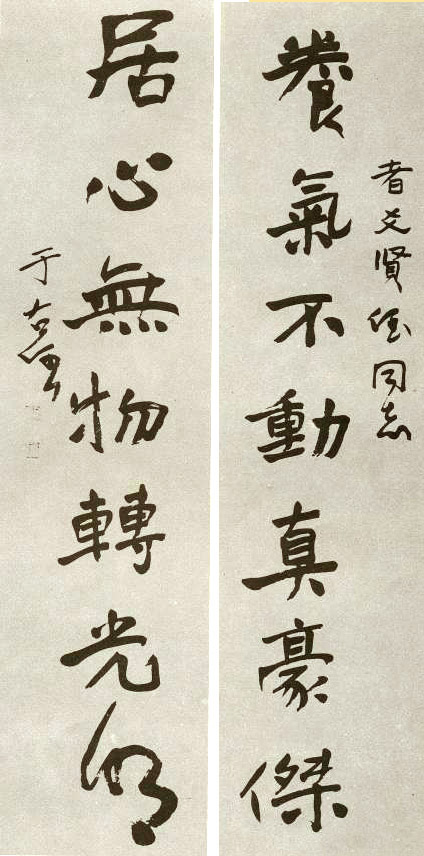 者文賢侄同志
養氣不動真豪傑
居心無物轉光明
于右任